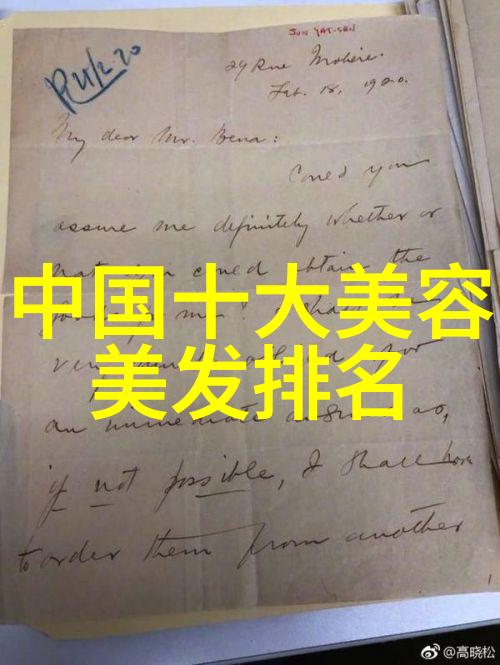 SUN YAT-SEN
R 21/2.20
29 Rue Molière.
Feb. 18, 1920.
My dear Mr. Bena:
Could you
assure me definitely whether or
not you could obtain the
中国十大美容
美发排名
very
for
an immediate answer as,
if not possible, I shall have
to order them from another
@高晓松